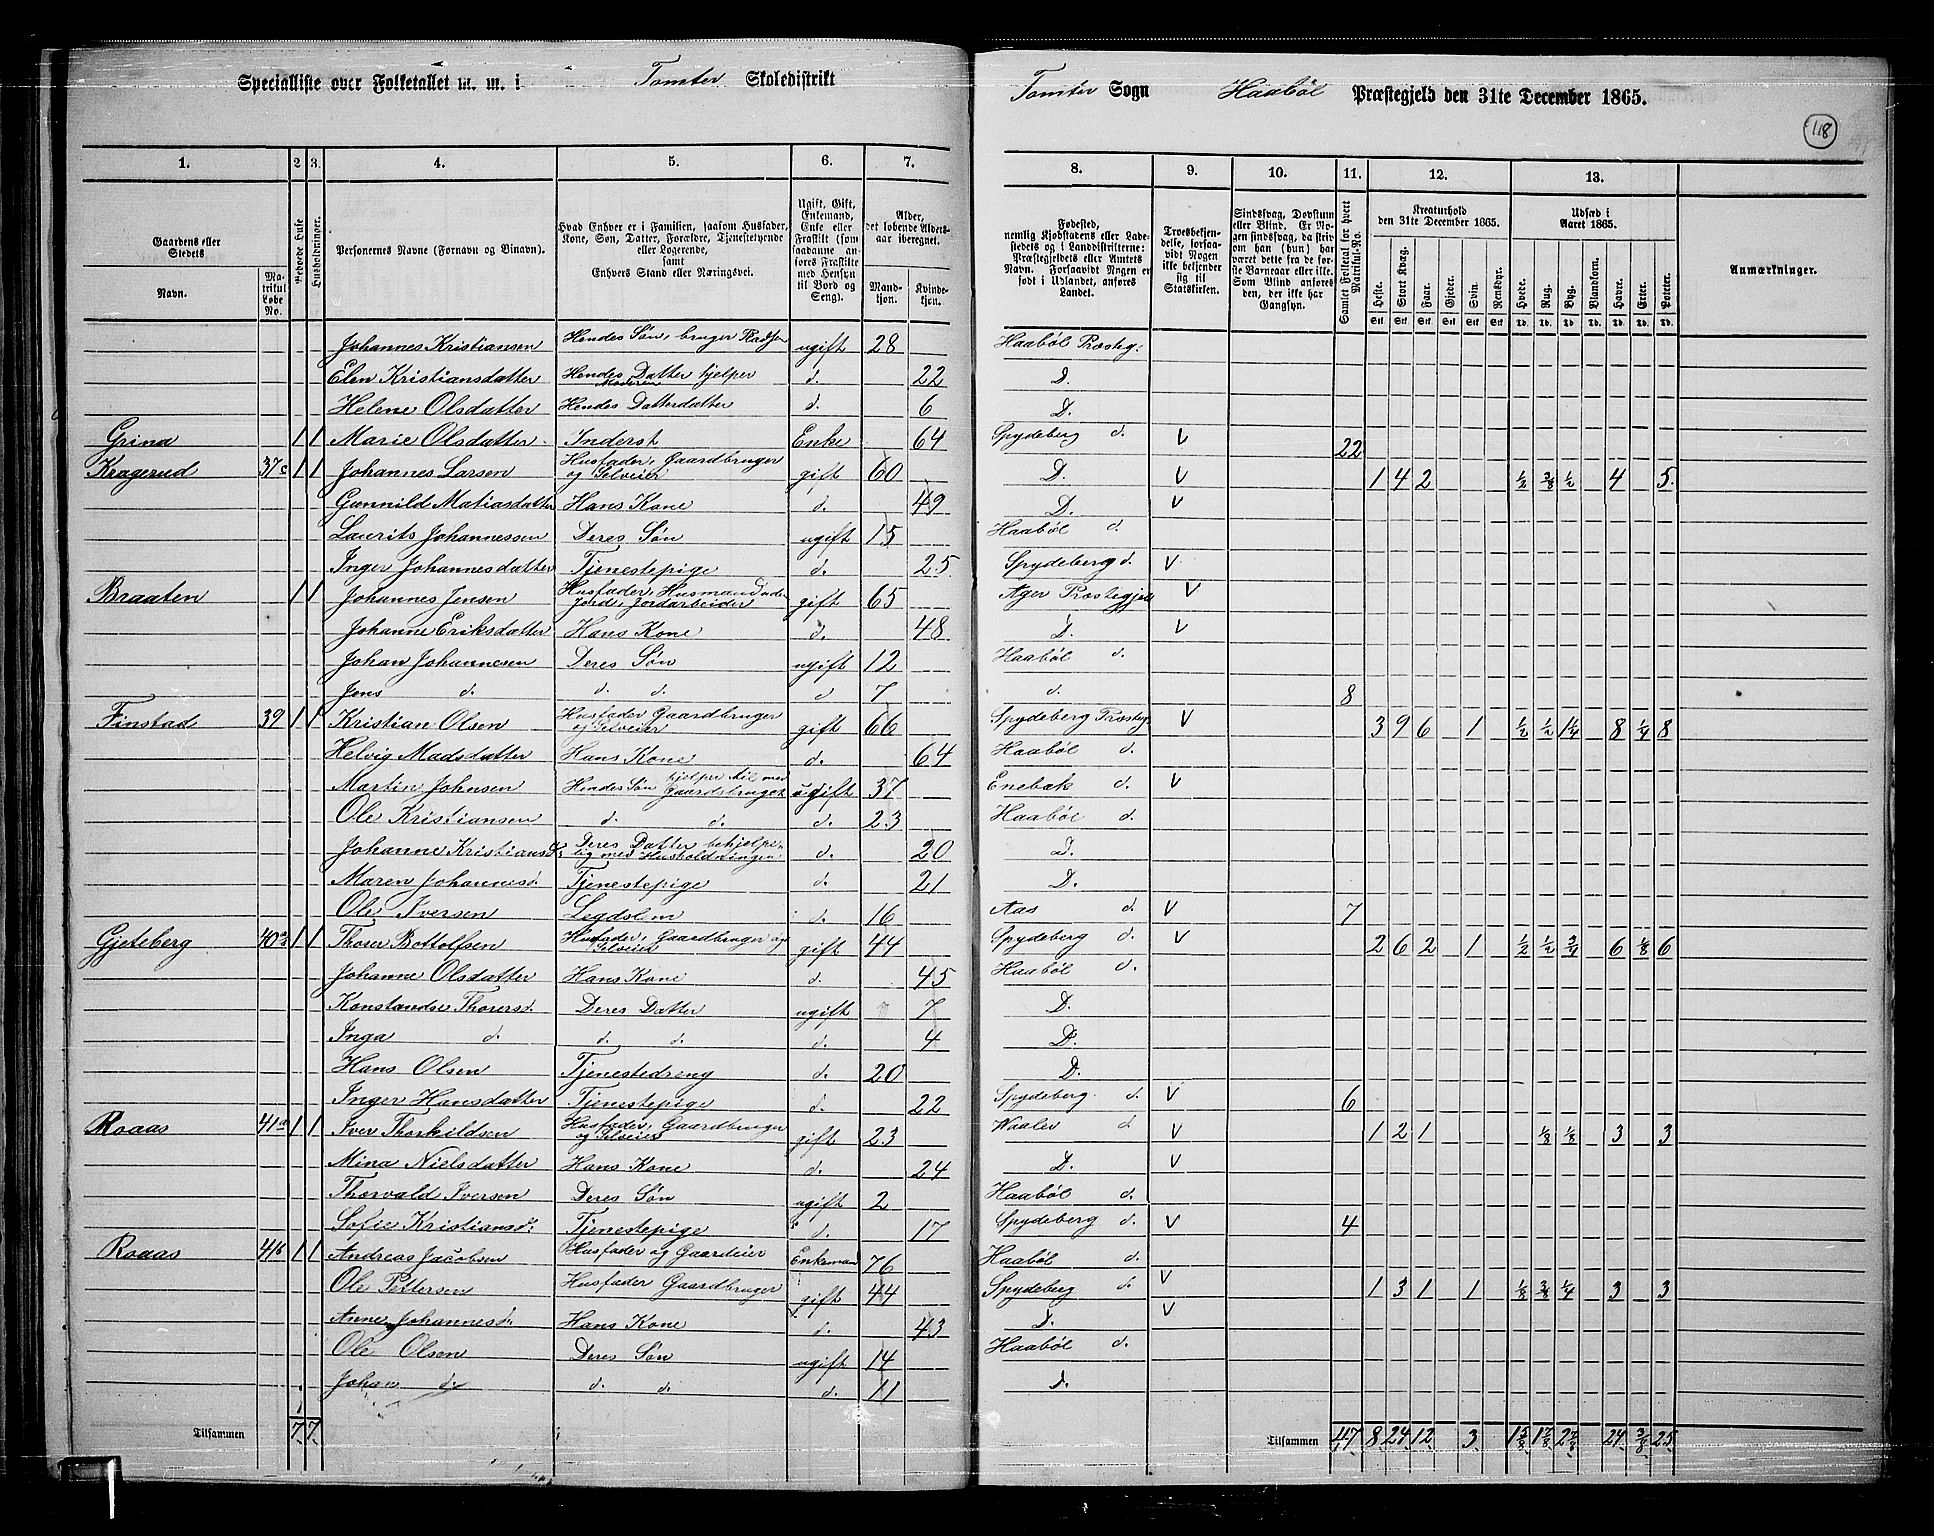 Specialliste over Folketallet m. m. i Tomter Skoledistrikt
Tomter Sogn Haabøl Præstegjeld den 31te December 1865.
118
1. 2 3. 4. 5. 6. 7. 8. 9. 10. 11. 12. 13.
Gaardens eller Stedets
Navn.
Matrikul Løbe No.
Beboede Huse
Husholdninger.
Personernes Navne (Fornavn og Binavn).
Hvad Enhver er i Familien, saasom Husfader, Kone, Søn, Datter, Forældre, Tjenestetyende eller Logerende, samt Enhvers Stand eller Næringsvei.
Ugift, Gift, Enkemand, Enke eller Fraskilt (som saadanne anføres Fraskilte med Hensyn til Bord og Seng).
Alder, det løbende Aldersaar iberegnet.
Mandkjøn. Kvindekjøn.
Fødested, nemlig Kjøbstadens eller Ladestedets og i Landdistrikterne: Præstegjeldets eller Amtets Navn. Forsaavidt Nogen er født i Udlandet, anføres Landet.
Troesbekjendelse, forsaavidt Nogen ikke bekjender sig til Statskirken.
Sindssvag, Døvstum eller Blind. Er Nogen sindssvag, da skrives om han (hun) har været det fra de første Barneaar eller ikke. Som Blind anføres den, der ikke har Gangsyn.
Samlet Folketal for hvert Matrikul-No.
Kreaturhold den 31te December 1865.
Heste. Stort Kvæg. Faar. Gjeder. Svin. Rensdyr.
Udsæd i Aaret 1865.
Hvede. Rug. Byg. Blandkorn. Havre. Erter. Poteter.
Stk Stk Stk Stk Stk Stk Td. Td. Td. Td. Td. Td. Td.
Anmærkninger.
Johannes Kristiansen Hendes Søn, bruger Pladsen ugift 28 Haabøl Præsteg:
Elen Kristiansdatter Hendes Datter hjelper Moderen d. 22 D.
Helene Olsdatter Hendes Datterdatter d. 6 D.
Grina 1 1 Marie Olsdatter Inderst Enke 64 Spydeberg d. V 22
Kragerud 37c 1 1 Johannes Larsen Husfader, Gaardbruger og Selveier gift 60 D. V 1 4 2 ½ ⅜ ½ 4 5.
Gunnild Matiasdatter Hans Kone d. 49 D. V
Laurits Johannessen Deres Søn ugift 15 Haabøl d.
Inger Johannesdatter Tjenestepige d. 25. Spydeberg d. V
Braaten 1 1 Johannes Jensen Husfader, Husmand uden Jord, Jordarbeider gift 65 Ager Præstegjeld V
Johanne Eriksdatter Hans Kone d. 48 D. V
Johan Johannesen Deres Søn ugift 12 Haabøl d.
Jens d. d. d. d 7 d. 8
Finstad 39 1 1 Kristian Olsen Husfader Gaardbruger og Selveier gift 66 Spydeberg Præsteg V 3 9 6 1 ½ ½ 1¼ 8 ¼ 8
Helvig Madsdatter Hans Kone d. 64 Haabøl d.
Martin Johnsen Hendes Søn hjelper til med Gaardsbruget ugift 37 Enebak d. V
Ole Kristiansen d. d. d. 23 Haabøl d.
Johanne Kristiansd: Deres Datter behjelpelig med Husholdningen d. 20 D.
Maren Johannesd. Tjenestepige d. 21 D.
Ole Iversen Legdslem d. 16 Aas d. V 7
Gjeteberg 40 1 1 Thorer Bottolfsen Husfader, Gaardbruger og Selveier gift 44 Spydeberg d. V 2 6 2 1 ½ ½ ¾ 6 ⅛ 6
Johanne Olsdatter Hans Kone d. 45 Haabøl d.
Konstandse Thorersd. Deres Datter ugift 7 D.
Inga d. d. d. d. 4 D.
Hans Olsen Tjenestedreng d. 20 D.
Inger Hansdatter Tjenestepige d. 22 Spydeberg d. V 6
Roaas 41a 1 1 Iver Thorkildsen Husfader, Gaardbruger og Selveier gift 23 Waaler d V 1 2 1 ⅛ ⅛ 3 3
Mina Nielsdatter Hans Kone d. 24 D. V
Thorvald Iversen Deres Søn ugift 2 Haabøl d.
Sofie Kristiansd: Tjenestepige d. 17 Spydeberg d. V 4
Roaas 41b 1 1 Andreas Jacobsen Husfader og Gaardeier Enkemand 76 Haabøl d.
Ole Pettersen Husfader Gaardbruger gift 44 Spydeberg d. V 1 3 1 1 ⅛ ⅜ ¼ 3 3
Anne Johannesd. Hans Kone d. 43 D. V
Ole Olsen Deres Søn ugift 14 Haabøl d.
Johan d. d. d. d. 11 D.
Tilsammen 7. 7. Tilsammen 47 8 24 12 3 1⅝ 1⅞ 2⅞ 24 ⅜ 25